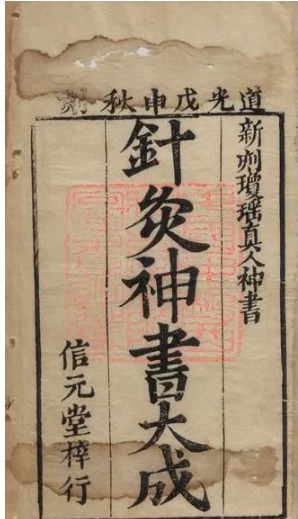 道光戊申秋刻
新刻瓊瑶真人神書
針灸神書大成
信元堂梓行